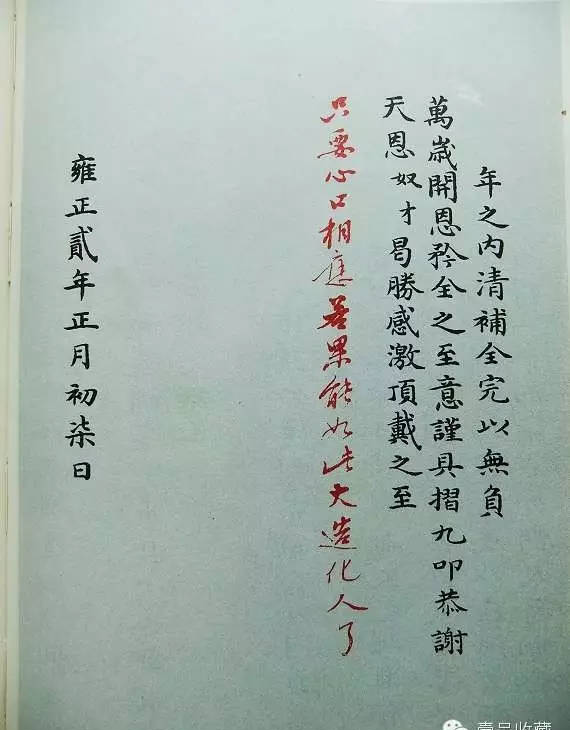 年之内清補全完以無負
萬歲開恩矜全之至意謹具摺九叩恭謝
天恩奴才曷勝感激頂戴之至
只要心口相應若果能如此大造化人了
雍正貳年正月初柒日